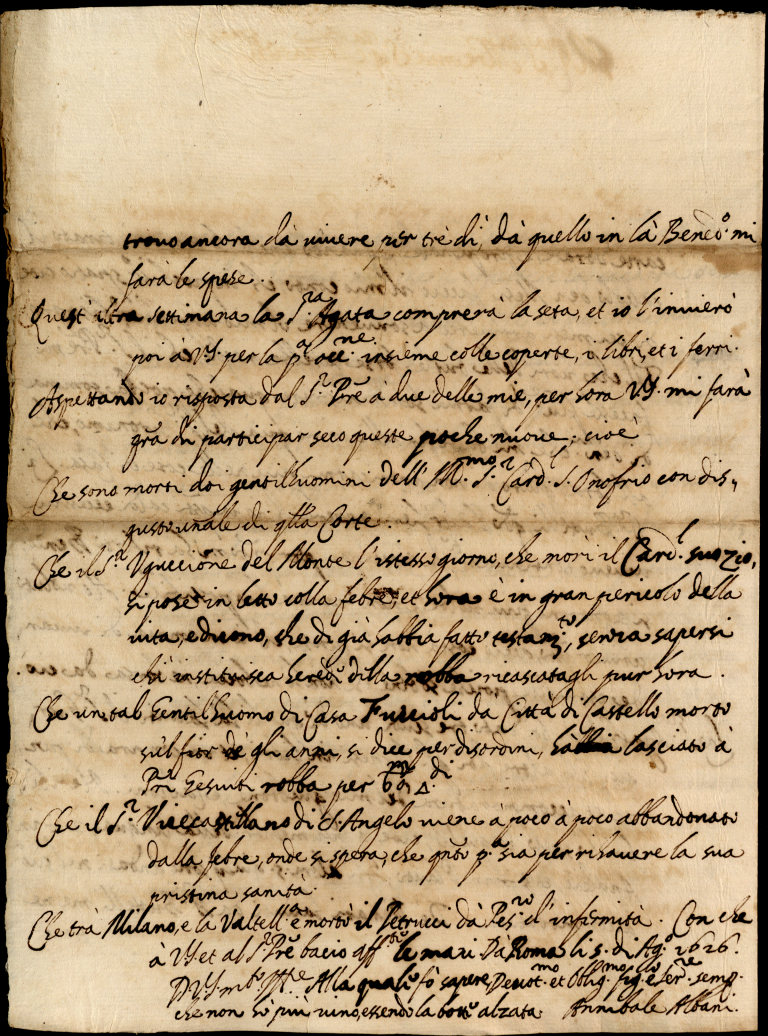 trovo ancora dà vivere per trè dì, dà quello in là Bened.o mi
farà le spese.
Quest' altra settimana la S.ra Agata comprerà la seta, et io l'invierò
poi à V.S. per la p.a occ.ne insieme colle coperte, i libri, et i ferri.
Aspettando io risposta dal S.r Pre à due delle mie, per hora V.S. mi farà
gra di participar seco queste poche nuove; cioè
Che sono morti doi gentilhuomini dell' Ill.mo S.r Card.l S. Onofrio con dis-
gusto unale di qlla Corte.
Che il S.r Uguccione del Monte l'istesso giorno, che morì il Card.l suo Zio,
si pose in letto colla febre, et hora è in gran pericolo della
vita, e dicono, che di già habbia fatto testam.to, senza sapersi
chi instituisca herede della robba ricascatagli pur hora.
Che un tal Gentilhuomo di Casa Fuccioli da Città di Castello morto
sul fior dè gli anni, si dice per disordini, habbia lasciato à
Pri Gesuiti robba per
Che il S.r Vicecastellano di S. Angelo viene à poco à poco abbandonato
dalla febre, onde si spera, che qnto p.a sia per rihavere la sua
pristina sanità.
Che trà Milano, e la Valtell.a è morto il Petrucci dà Pes.ro d'infirmità. Con che
à V.S. et al S.r Pre bacio aff.te le mani. Dà Roma li 5. di Ag.o 1626.
D V.S. m.to Ill.e Alla quale fò sapere, Devot.mo et Oblig.mo fig.llo e Ser.re semp.
che non hò più vino, essendo la botte alzata. Annibale Albani.